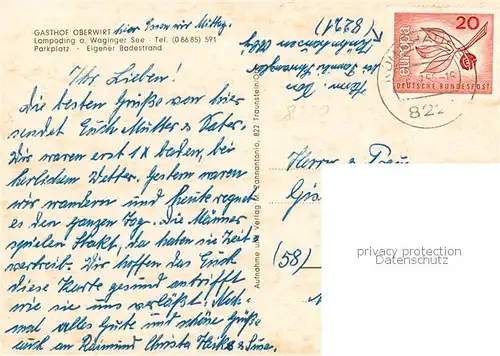 GASTHOF OBERWIRT hier Essen wir Mittag.
Lampoding a. Waginger See · Tel. (0 86 85) 591
Parkplatz · Eigener Badestrand
Ihr Lieben!
Die besten Grüße von hier
sendet Euch Mutter & Vater.
Wir waren erst 1x baden, bei
herlichem Wetter. Gestern waren
wir wandern und heute regnet
es den ganzen Tag. Die Männer
spielen Skat, da haben sie Zeit
vertreib. Wir hoffen das Euch
diese Karte gesund antrifft
wie sie uns verläßt. Noch-
mal alles Gute und schöne Grüße
auch an Raimund Christa Heike & Suse.
Aufnahme und Verlag M. Zannantonio, 822 Traunstein/Obb
(8221)
20
europa
DEUTSCHE BUNDESPOST
822
Herrn u. Frau
Gis
(58)
privacy protection
Datenschutz